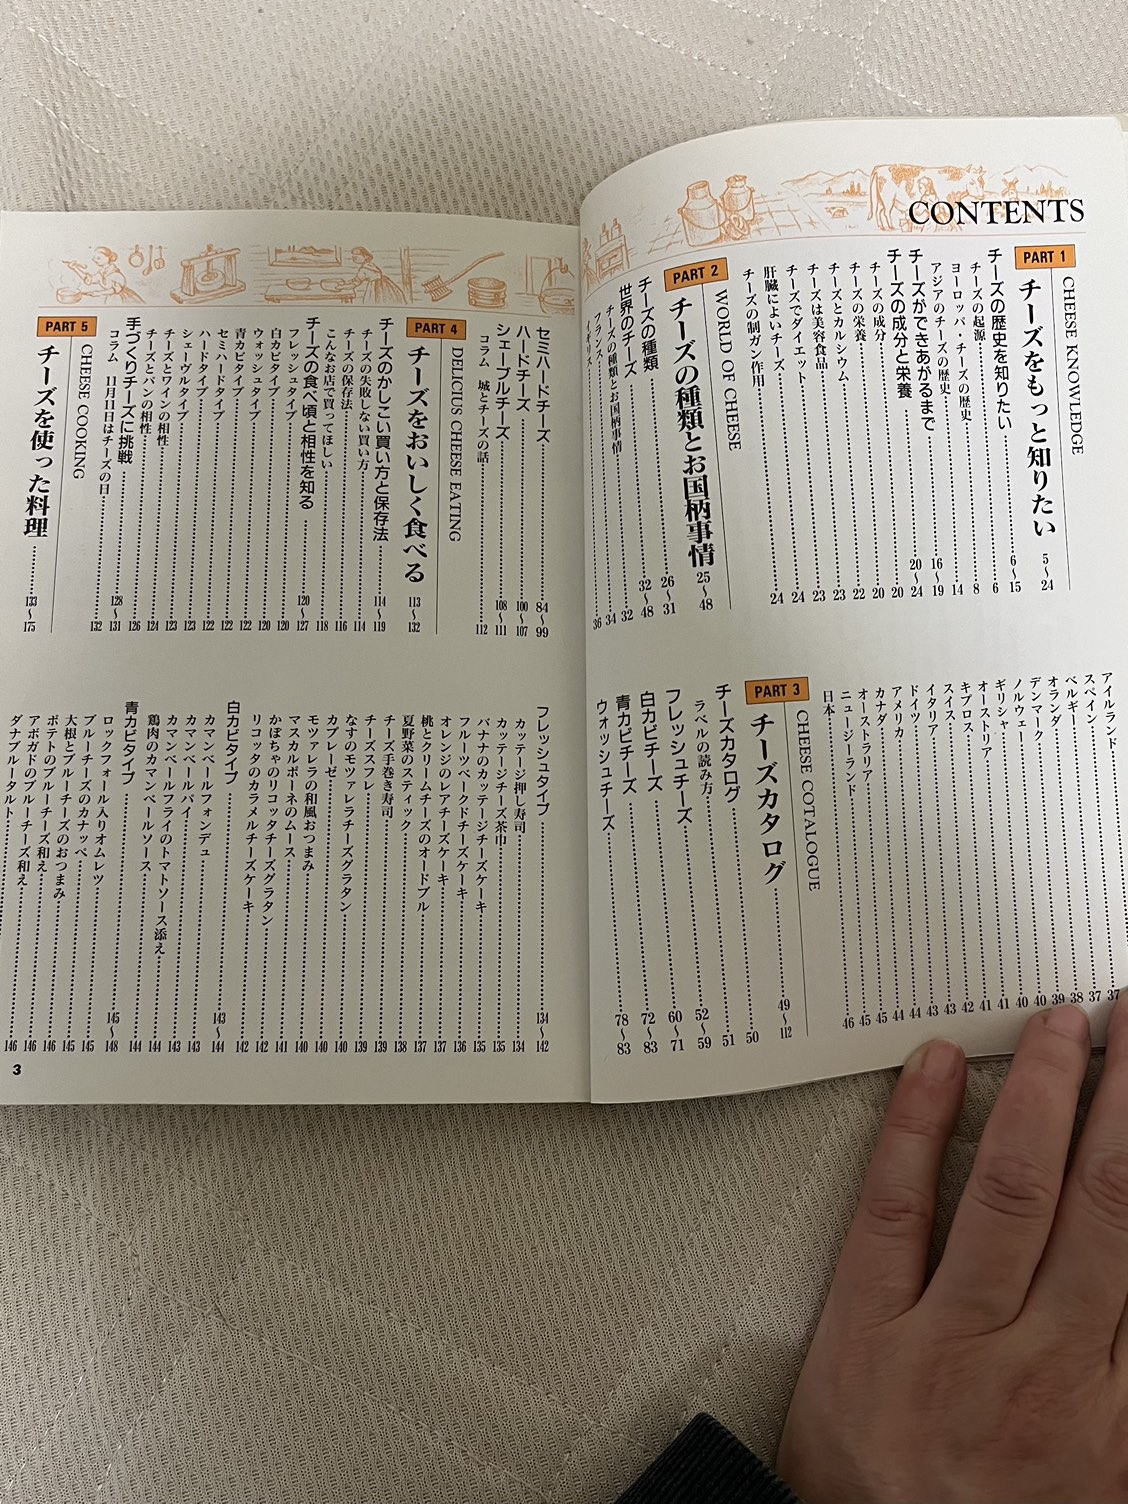 CONTENTS
PART 1
CHEESE KNOWLEDGE
チーズをもっと知りたい 5〜24
チーズの歴史を知りたい 6〜15
チーズの起源 6
ヨーロッパ・チーズの歴史 8
アジアのチーズの歴史 14
チーズができあがるまで 16〜19
チーズの成分と栄養 20〜24
チーズの成分 20
チーズの栄養 20
チーズとカルシウム 22
チーズは美容食品 23
チーズでダイエット 23
肝臓によいチーズ 24
チーズの制ガン作用 24
PART 2
WORLD OF CHEESE
チーズの種類とお国柄事情 25〜48
チーズの種類 26〜31
世界のチーズ 32〜48
チーズの種類とお国柄事情 32
フランス 34
イギリス 36
アイルランド 37
スペイン 37
ベルギー 38
オランダ 39
デンマーク 40
ノルウェー 40
ギリシャ 41
オーストリア 41
キプロス 42
スイス 43
イタリア 43
ドイツ 44
アメリカ 44
カナダ 45
オーストラリア 45
ニュージーランド 46
日本
PART 3
CHEESE COTALOGUE
チーズカタログ 49〜112
チーズカタログ 50
ラベルの読み方 51
フレッシュチーズ 52〜59
白カビチーズ 60〜71
青カビチーズ 72〜83
ウォッシュチーズ 78〜83
セミハードチーズ 84〜99
ハードチーズ 100〜107
シェーブルチーズ 108〜111
コラム 城とチーズの話 112
PART 4
DELICIUS CHEESE EATING
チーズをおいしく食べる 113〜132
チーズのかしこい買い方と保存法 114〜119
チーズの失敗しない買い方 114
チーズの保存法 116
こんなお店で買ってほしい 118
チーズの食べ頃と相性を知る 120〜127
フレッシュタイプ 120
白カビタイプ 120
ウォッシュタイプ 122
青カビタイプ 122
セミハードタイプ 122
ハードタイプ 122
シェーヴルタイプ 123
チーズとワインの相性 123
チーズとパンの相性 124
手づくりチーズに挑戦 126
コラム 11月11日はチーズの日 128〜131
132
PART 5
CHEESE COOKING
チーズを使った料理 133〜175
フレッシュタイプ 134〜142
カッテージ押し寿司 134
カッテージチーズ茶巾 135
バナナのカッテージチーズケーキ 135
フルーツベークドチーズケーキ 136
オレンジのレアチーズケーキ 137
桃とクリームチーズのオードブル 137
夏野菜のスティック 138
チーズ手巻き寿司 139
チーズスフレ 139
なすのモツァレラチーズグラタン 140
カプレーゼ 140
モツァレラの和風おつまみ 140
マスカルポーネのムース 141
かぼちゃのリコッタチーズグラタン 142
リコッタのカラメルチーズケーキ 142
白カビタイプ 143〜144
カマンベールフォンデュ 143
カマンベールパイ 143
カマンベールフライのトマトソース添え 144
鶏肉のカマンベールソース 144
青カビタイプ 145〜148
ロックフォール入りオムレツ 145
ブルーチーズのカナッペ 145
大根とブルーチーズのおつまみ 146
ポテトのブルーチーズ和え 146
アボガドのブルーチーズ和え 146
ダナブルータルト 146
3